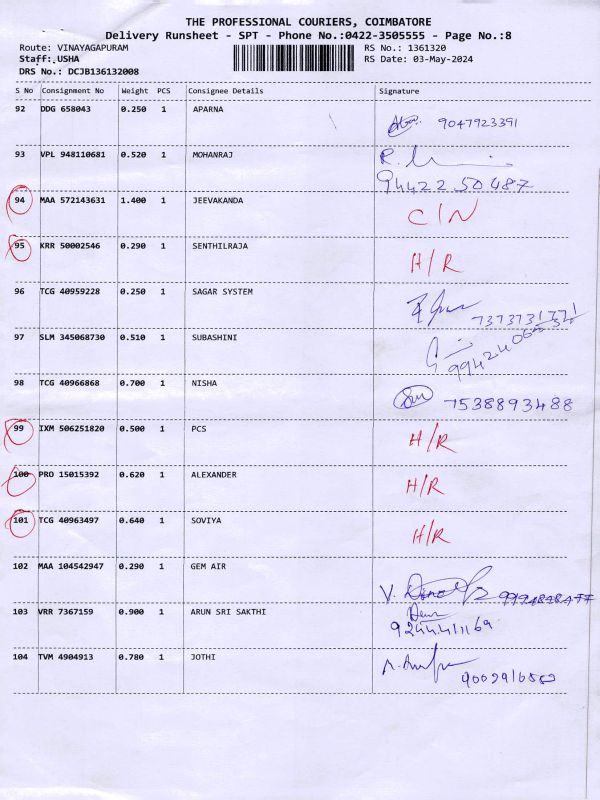 THE PROFESSIONAL COURIERS, COIMBATORE
Delivery Runsheet - SPT - Phone No.:0422-3505555 - Page No.:8
Route: VINAYAGAPURAM RS No.: 1361320
Staff:.USHA RS Date: 03-May-2024
DRS No.: DCJB136132008
S No Consignment No Weight PCS Consignee Details Signature
92 DDG 658043 0.250 1 APARNA 9047923391
93 VPL 948110681 0.520 1 MOHANRAJ
94422 50487
94 MAA 572143631 1.400 1 JEEVAKANDA C/N
95 KRR 50002546 0.290 1 SENTHILRAJA H/R
96 TCG 40959228 0.250 1 SAGAR SYSTEM 7373731771
97 SLM 345068730 0.510 1 SUBASHINI
98 TCG 40966868 0.700 1 NISHA 7538893488
99 IXM 506251820 0.500 1 PCS H/R
100 PRO 15015392 0.620 1 ALEXANDER H/R
101 TCG 40963497 0.640 1 SOVIYA H/R
102 MAA 104542947 0.290 1 GEM AIR
103 VRR 7367159 0.900 1 ARUN SRI SAKTHI
104 TVM 4904913 0.780 1 JOTHI